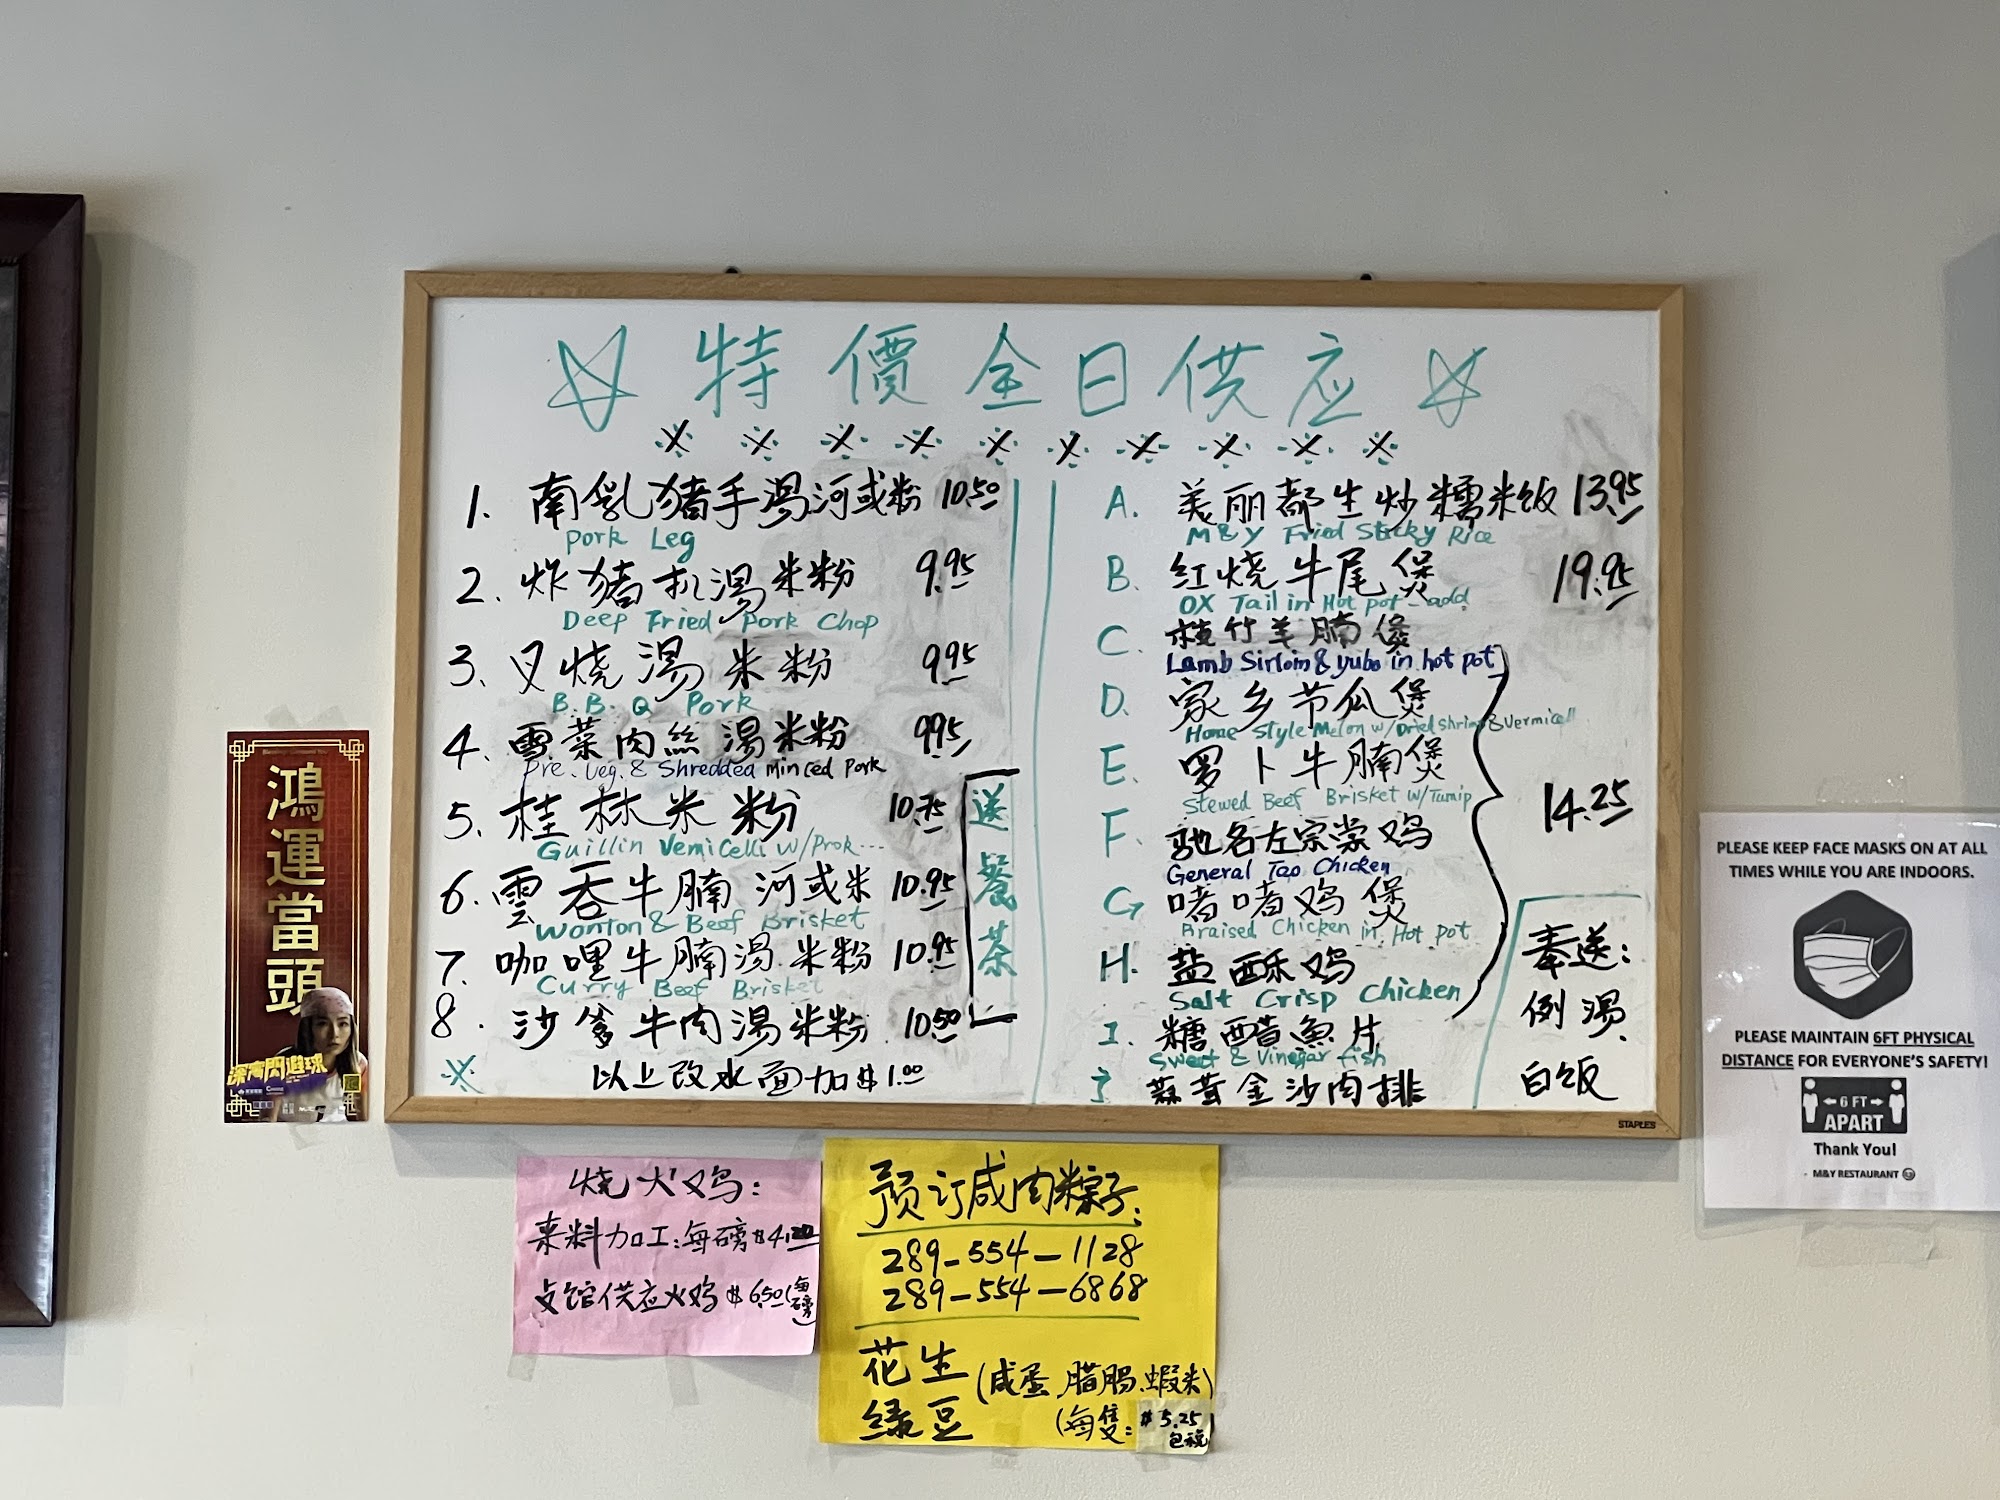 特價全日供应
1. 南乳豬手湯河或粉 10.50
Pork Leg
2. 炸豬扒湯米粉 9.95
Deep Fried Pork Chop
3. 叉烧湯米粉 9.95
B.B.Q Pork
4. 雪菜肉絲湯米粉 9.95
Pre. Veg. & Shredded minced Pork
5. 桂林米粉 10.75
Guillin Vemicelli w/Prok...
6. 雲吞牛腩河或米 10.95
Wonton & Beef Brisket
7. 咖哩牛腩湯米粉 10.95
Curry Beef Brisket
8. 沙爹牛肉湯米粉 10.50
以上改水面加$1.00
送餐茶
A. 美丽都生炒糯米饭 13.95
M&Y Fried Sticky Rice
B. 红烧牛尾煲 19.95
OX Tail in Hot pot - add
C. 枝竹羊腩煲
Lamb Sirloin & yubo in hot pot
D. 家乡节瓜煲
Home style Melon w/Dried shrimp & vermicell
E. 罗卜牛腩煲
Stewed Beef Brisket w/Turnip
F. 驰名左宗棠鸡
General Tao Chicken
G 啫啫鸡煲
Braised Chicken in Hot pot
H. 盐酥鸡
Salt Crisp Chicken
I. 糖醋魚片
Sweet & Vinegar fish
蒜茸金沙肉排
14.25
奉送:
例湯.
白饭
STAPLES
鴻運當頭
深宵閃避球
PLEASE KEEP FACE MASKS ON AT ALL
TIMES WHILE YOU ARE INDOORS.
PLEASE MAINTAIN 6FT PHYSICAL
DISTANCE FOR EVERYONE'S SAFETY!
6 FT
APART
Thank You!
- M&Y RESTAURANT
烧火鸡:
来料加工:每磅$4.20
占馆供应火鸡$6.50(每磅)
预订咸肉粽子:
289-554-1128
289-554-6868
花生
绿豆
(咸蛋.腊肠.蝦米)
(每隻: $5.25
包税